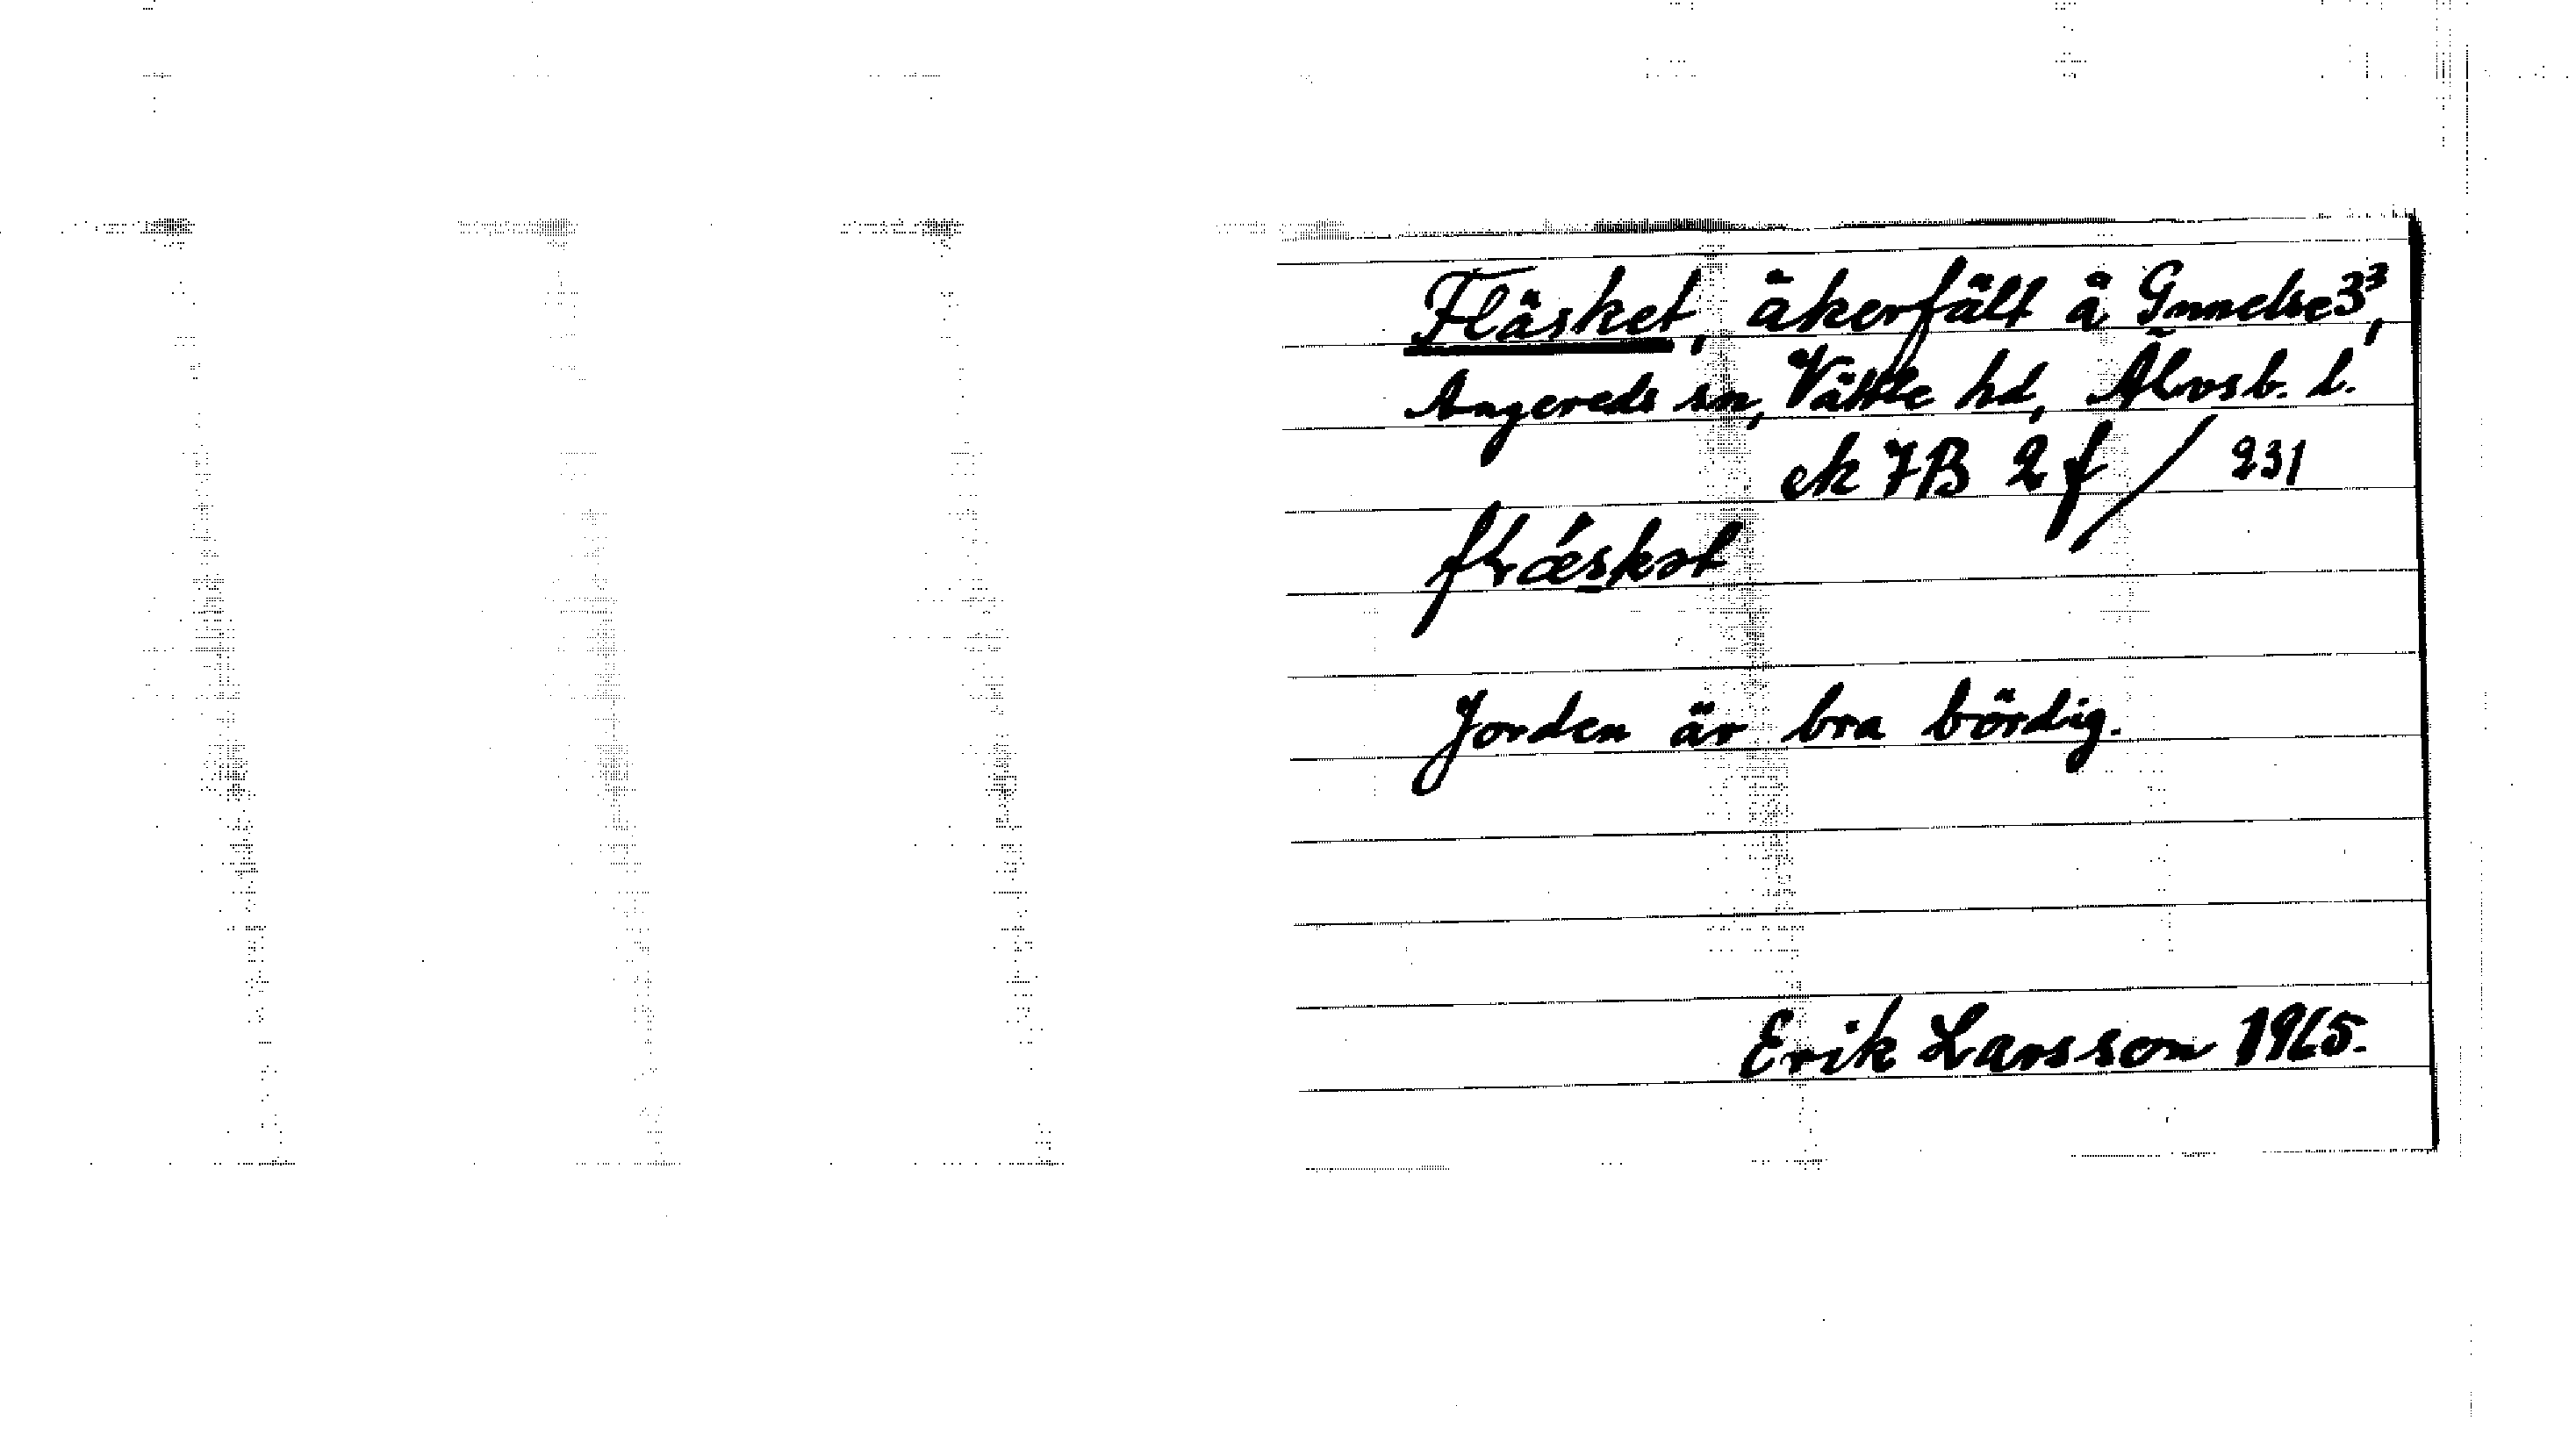 Fläsket, åkerfält å Gunnelse 3³,
Angereds sn, Vättle hd, Älvsb. l.
ek 7B 2f / 231
Jorden är bra bördig.
Erik Larsson 1965.